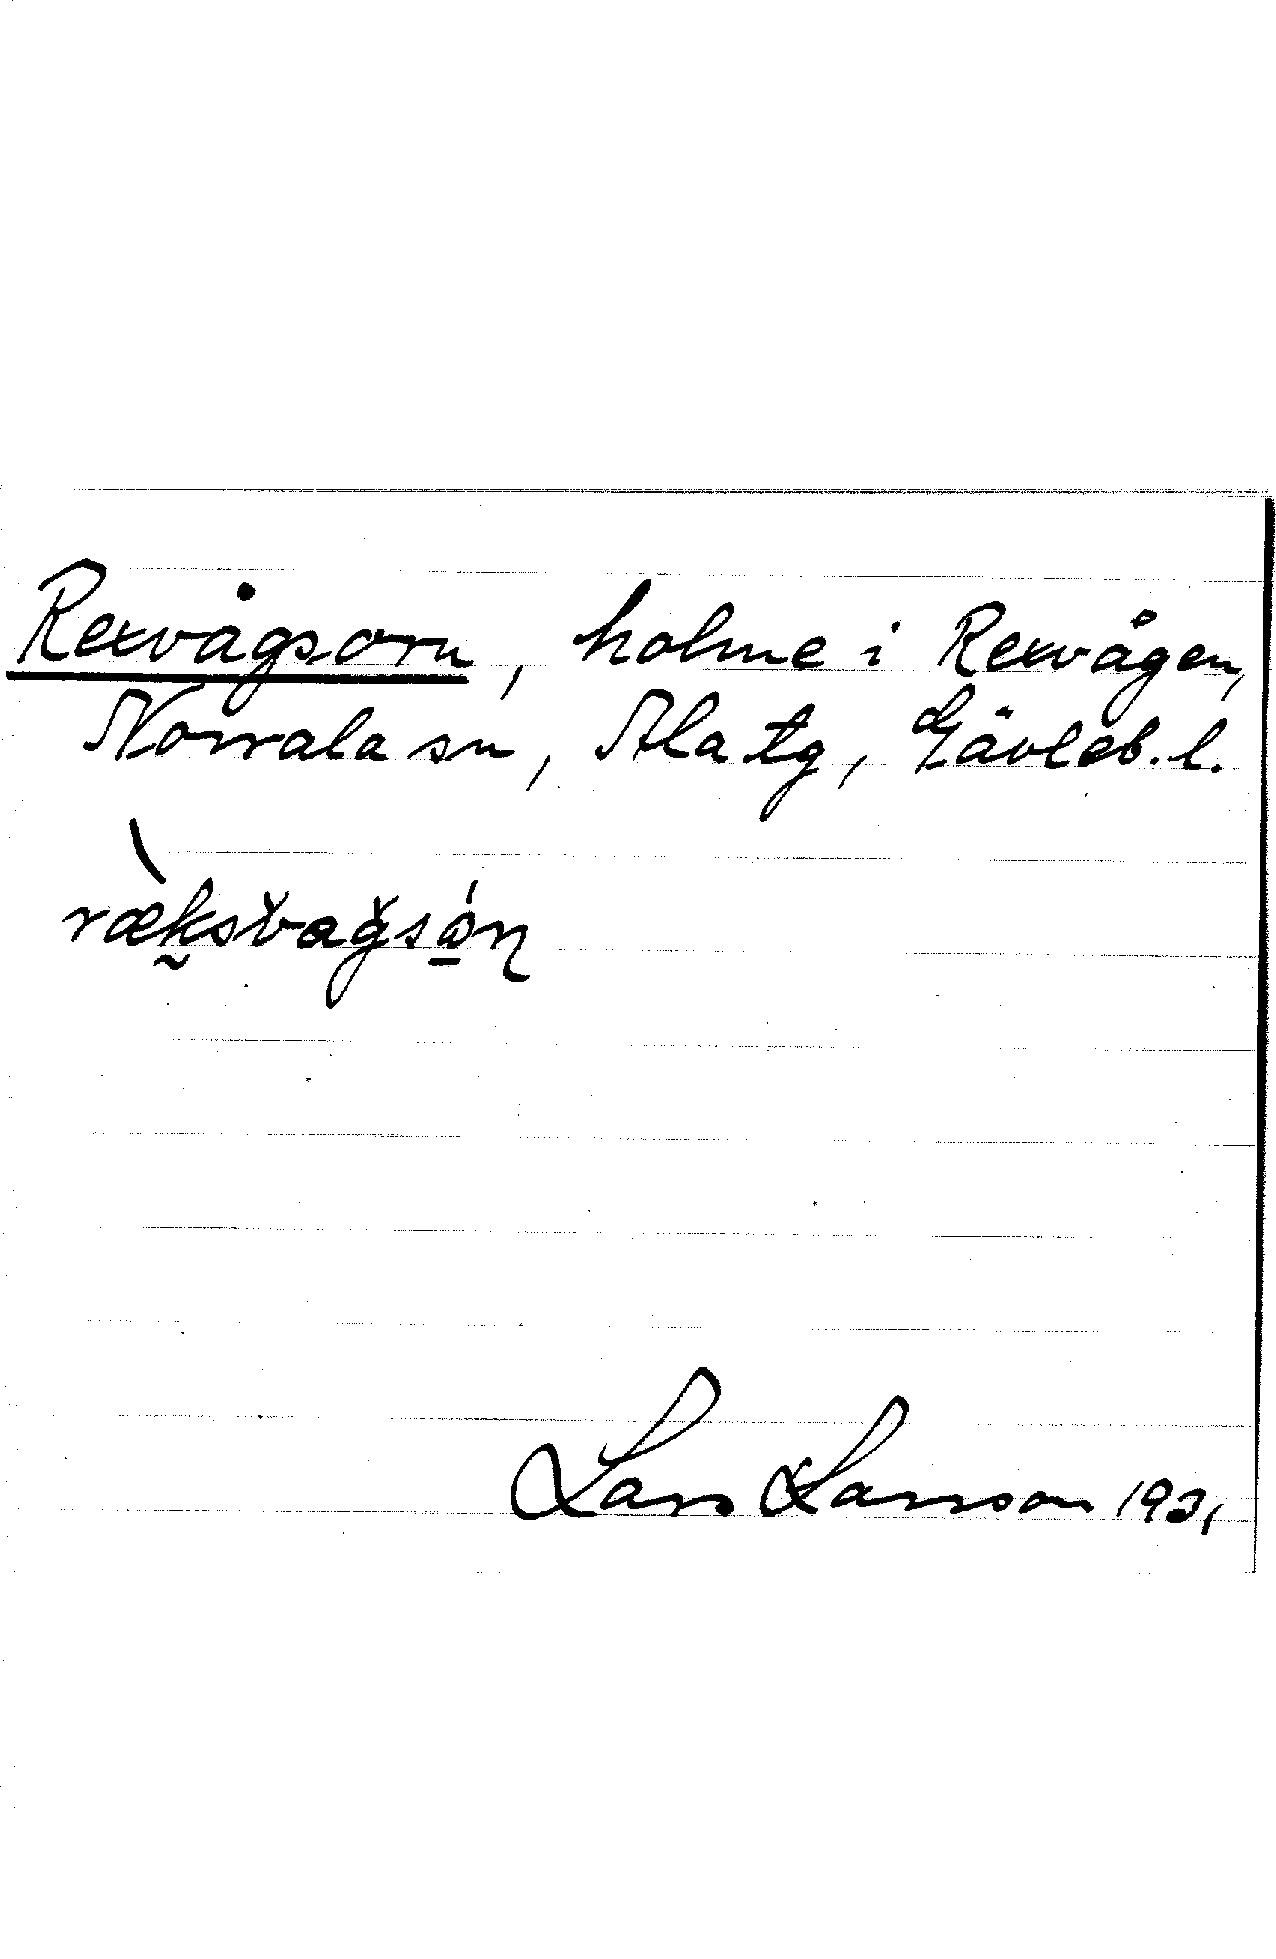 Rexvågsorn, holme i Rexvågen,
Norrala sn, Ala tg, Gävleb. l.
ræksvagsón
Lars Larsson 1931